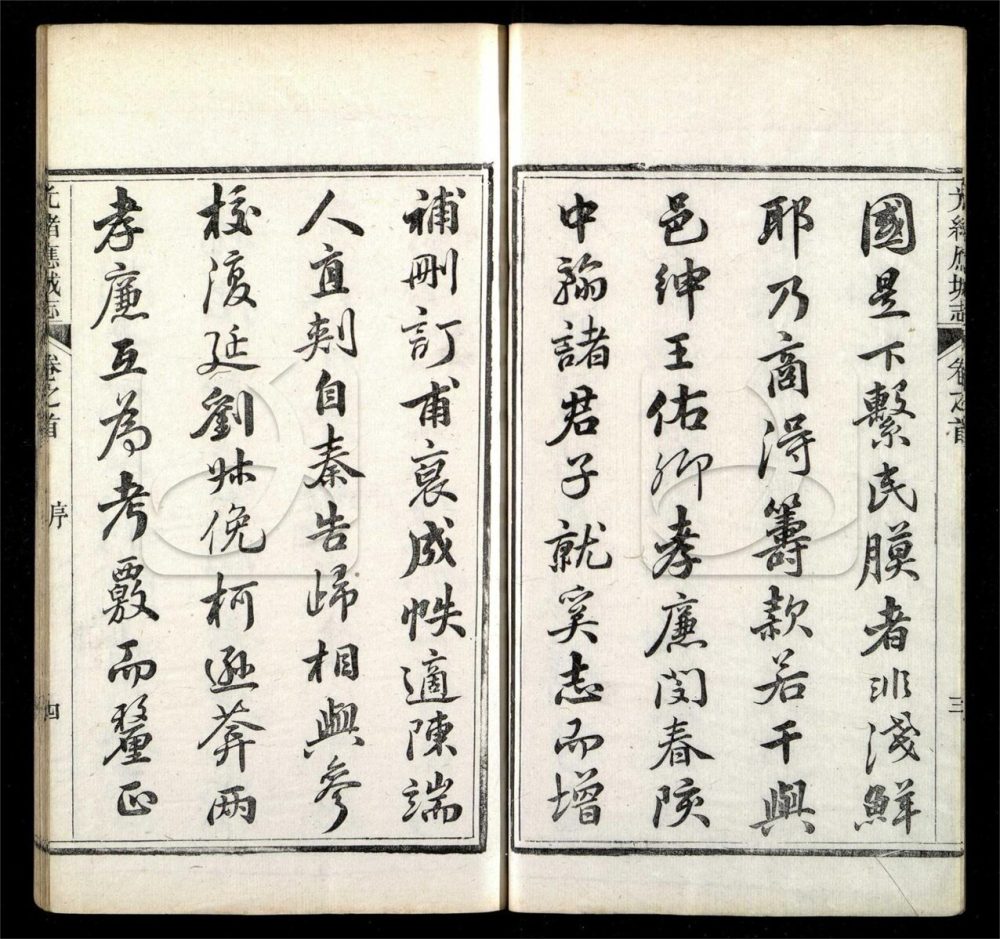 光緒應城志 卷之首 三
國是下繫民瘼者非淺鮮
耶乃商得籌款若干與
邑紳王佑卿孝廉閔春陔
中翰諸君子就奚志而增
補刪訂甫裒成帙適陳端
人直刺自秦告歸相與參
校復延劉 俛柯遜葊兩
孝廉互為考覈而釐正
光緒應城志 卷之首 序 四